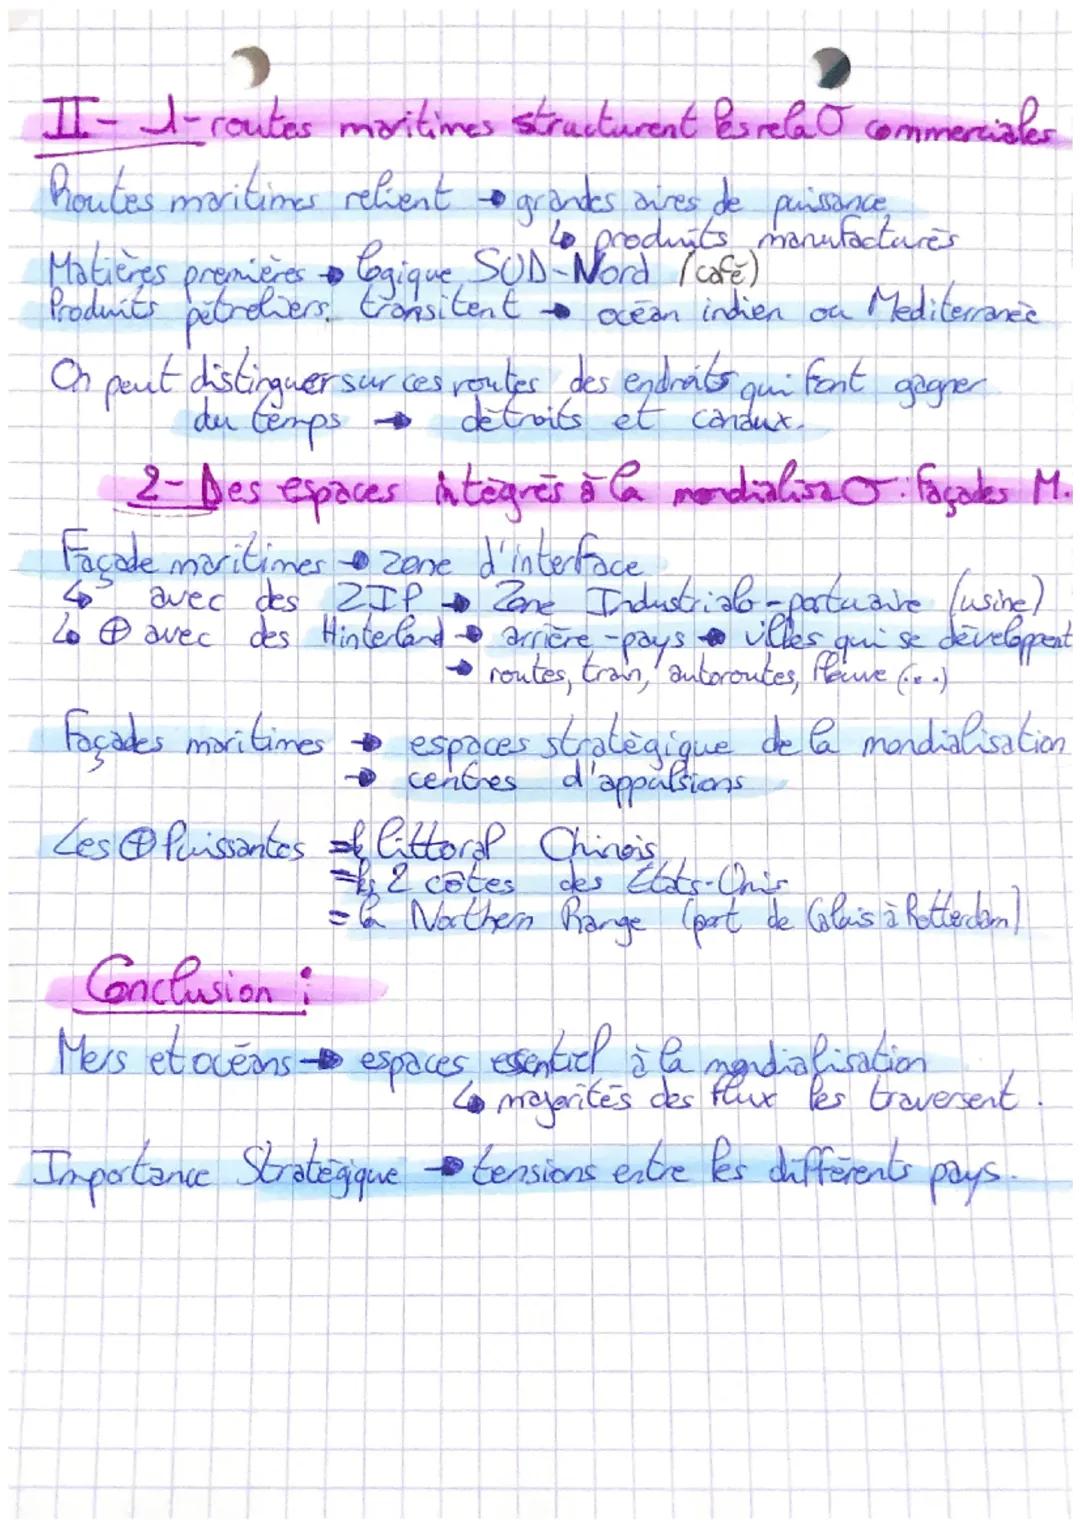 II- 1- routes maritimes structurent les rela° commerciales
Routes maritimes relient → grandes aires de puissance
↳ produits manufacturés
Matières premières → logique SUD-Nord (café)
Produits pétroliers transitent → océan indien ou Mediterranée
On peut distinguer sur ces routes des endroits qui font gagner
du temps → détroits et canaux.
2- Des espaces intégrés à la mondialisa° : façades M.
Façade maritimes → zone d'interface
↳ avec des ZIP → Zone Industrialo-portuaire (usine)
↳ ⊕ avec des Hinterland → arrière-pays → villes qui se développent
→ routes, train, autoroutes, fleuve (...)
Façades maritimes → espaces stratégique de la mondialisation
→ centres d'appulsions
Les ⊕ Puissantes = le littoral Chinois
= les 2 côtes des États-Unis
= la Northern Range (port de Calais à Rotterdam)
Conclusion :
Mers et océans → espaces essentiel à la mondialisation
↳ majorités des flux les traversent.
Importance Stratégique → tensions entre les différents pays.